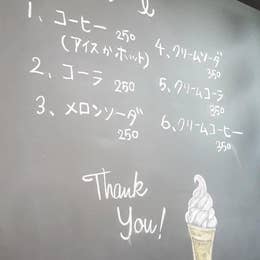 1、コーヒー 250
(アイスかホット)
2、コーラ 250
3、メロンソーダ 250
4、クリームソーダ 350
5、クリームコーラ 350
6、クリームコーヒー 350
Thank
You!